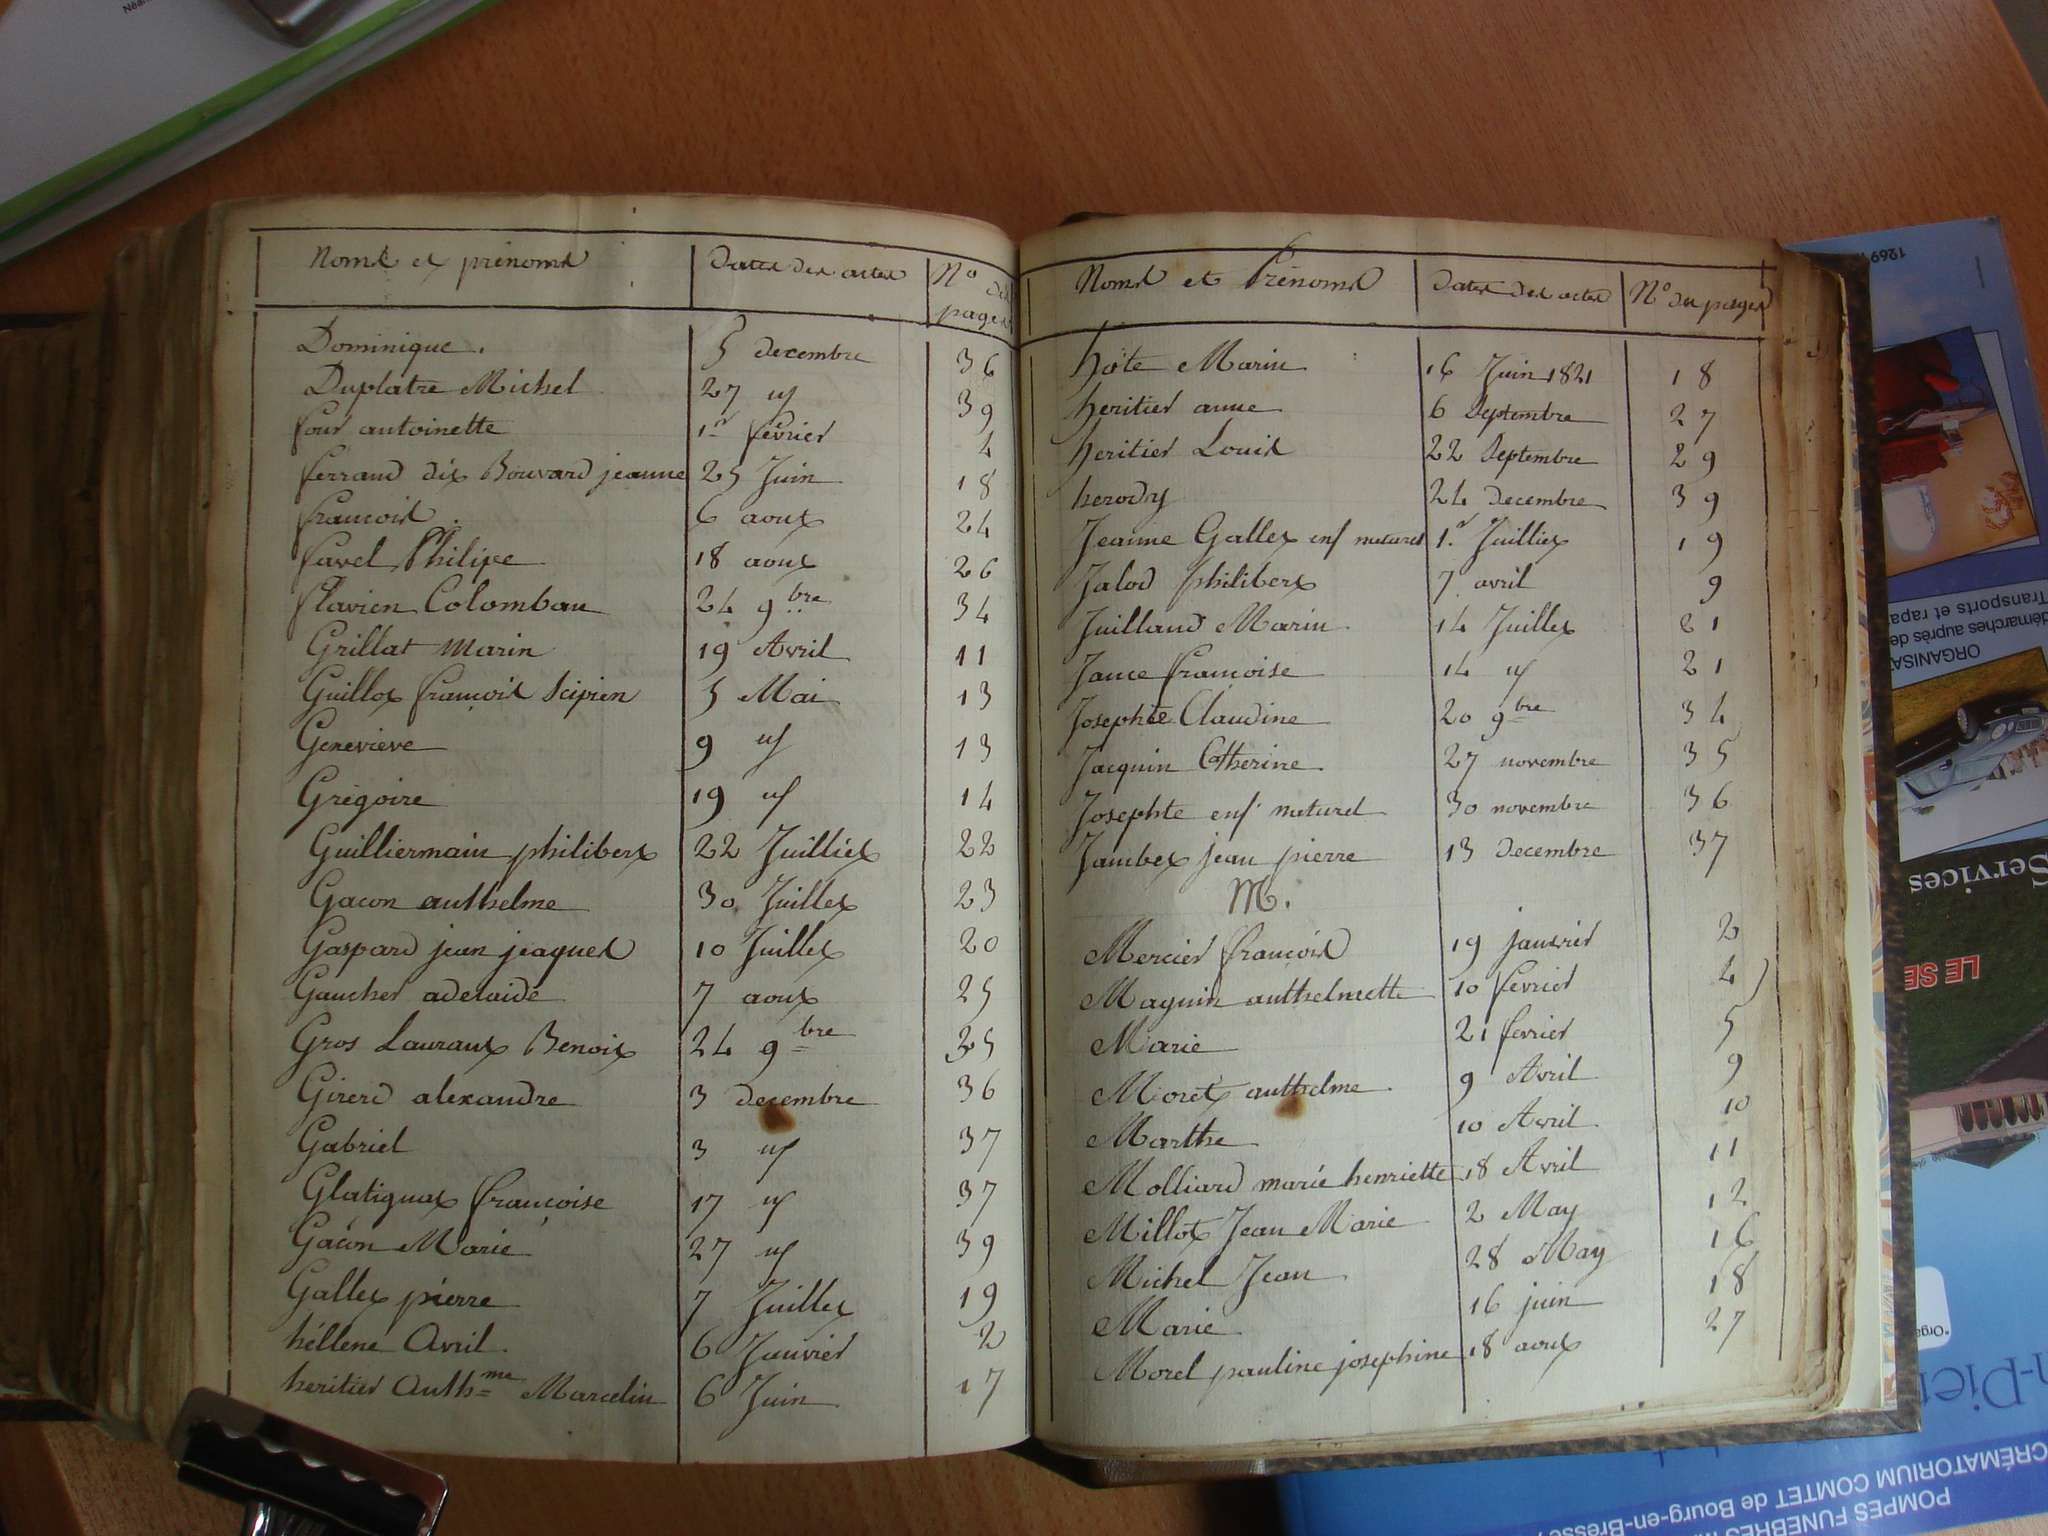 Noms et prénoms Dates des actes N° des pages
Dominique. 5 decembre 36
Duplatre Michel 27 id 39
four antoinette 1er février 4
ferrand dit Bouvard jeanne 25 Juin 18
francois 6 aout 24
favel Philipe 18 aout 26
flavien Colomban 24 9bre 34
Grillat Marin 19 Avril 11
Guillot francois Scipien 5 Mai 13
Genevieve 9 id 13
Grégoire 19 id 14
Guilliermain philibert 22 Juilliet 22
Gacon anthelme 30 Juillet 23
Gaspard jean jeaques 10 Juillet 20
Gaucher adelaide 7 aout 25
Gros Laurant Benoit 24 9bre 35
Girerd alexandre 3 decembre 36
Gabriel 3 id 37
Glatignat francoise 17 id 37
Gacon Marie 27 id 39
Gallet pierre 7 Juillet 19
héllene Avril 6 Janvier 2
heritier Anthme Marcelin 6 Juin 17
Noms et Prénoms Dates des actes N° du pages
hote Marin 16 Juin 1821 18
heritier anne 6 Septembre 27
heritier Louis 22 Septembre 29
herody 24 decembre 39
Jeanne Gallet enf naturel 1er Juilliet 19
Jalod philibert 7 avril 9
Juilland Marin 14 Juillet 21
Jance francoise 14 id 21
Josephte Claudine 20 9bre 34
Jacquin Catherine 27 novembre 35
Josephte enf naturel 30 novembre 36
Jambet jean pierre 13 decembre 37
M.
Mercier francois 19 janvier 2
Maguin anthelmette 10 fevrier 4
Marie 21 fevrier 5
Moret anthelme 9 Avril 9
Marthe 10 Avril 10
Molliard marie henriette 18 Avril 11
Millot Jean Marie 2 May 12
Michel Jean 28 May 16
Marie 16 juin 18
Morel pauline josephine 18 aout 27
1269
ORGANISAT
démarches auprès de
Transports et rapa
Services
LE SE
n-Pier
CRÉMATORIUM COMTET de Bourg-en-Bresse
POMPES FUNÈBRES